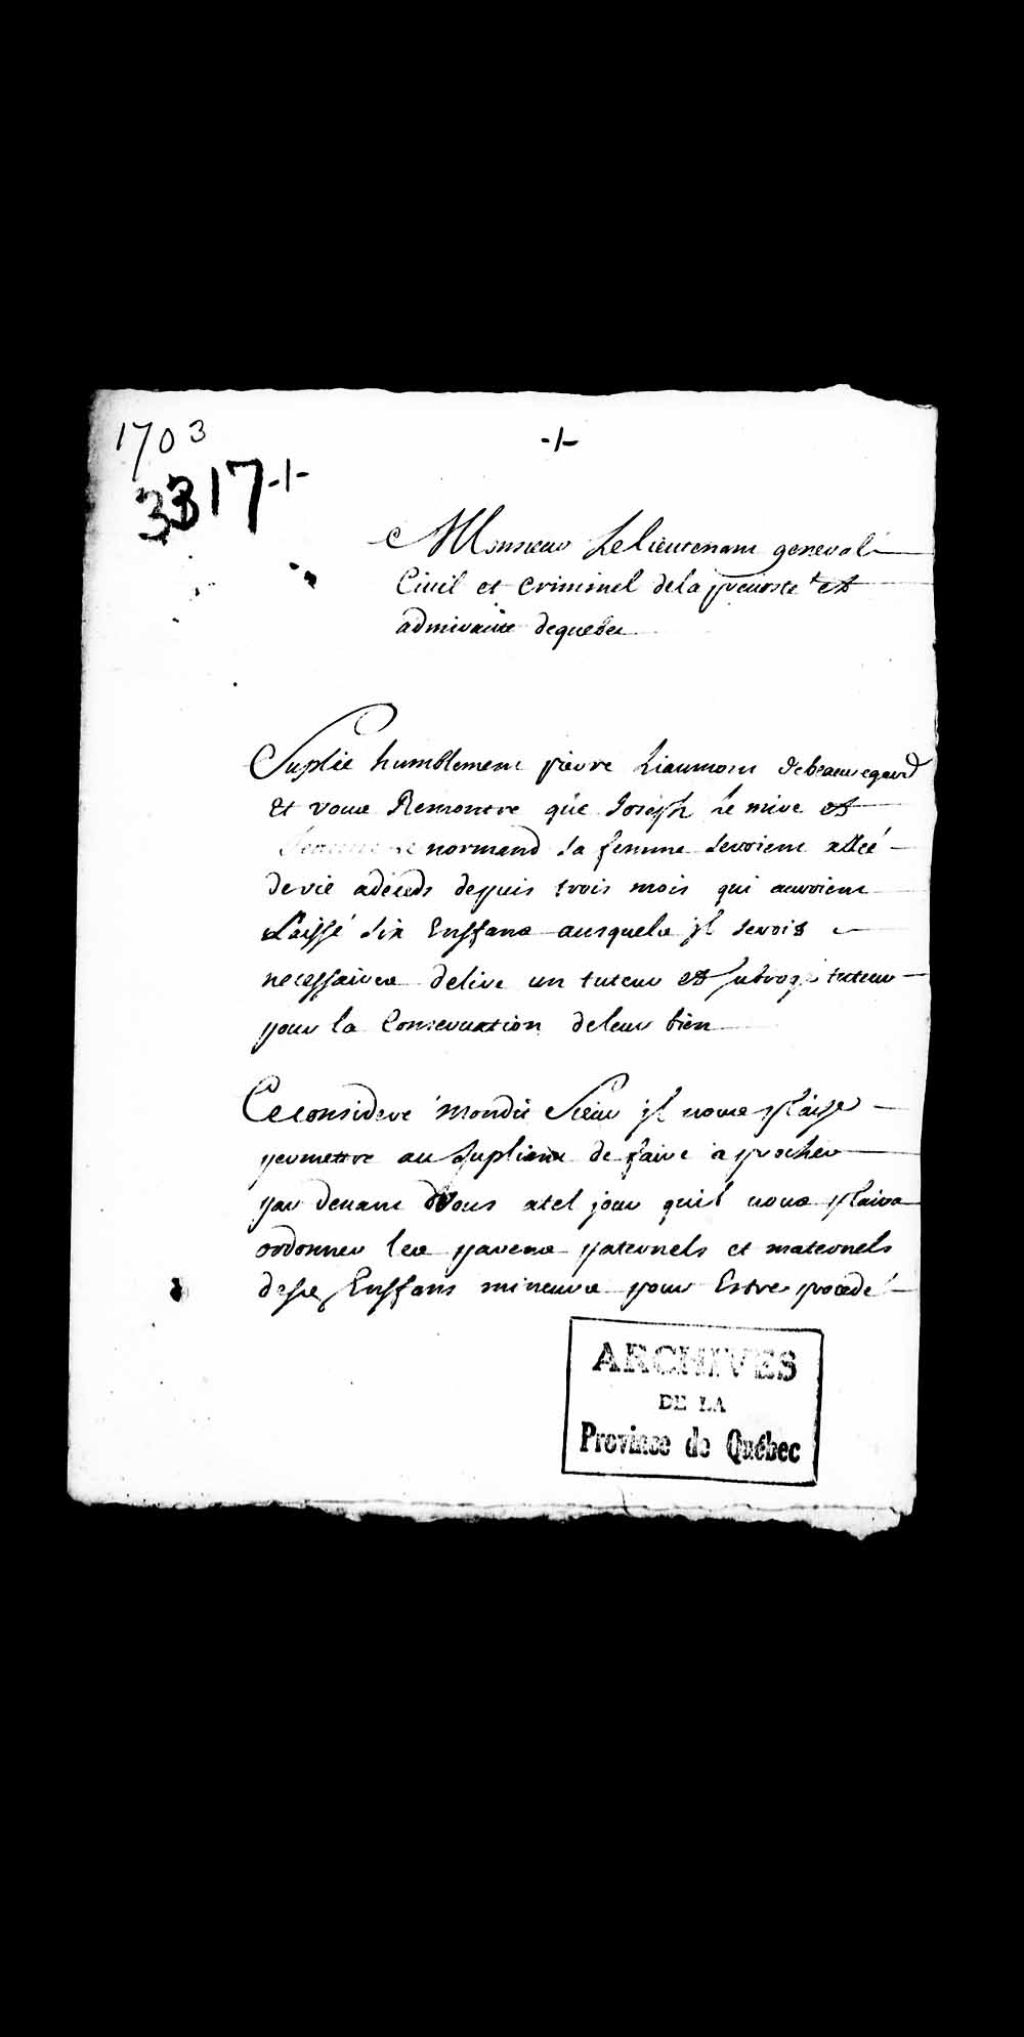 1703
-/-
3317-/-
Monsieur Le lieutenant general
Civil et criminel dela prevosté et
admirauté dequebec
Suplie humblement pierre haimon debeauregard
Et vous Remontre que Joseph le mire et
normand sa femme seroient allé
de vie a deceds depuis trois mois qui auroient
Laissé six Enffans ausquels jl serois
necessaires delire un tuteur et subrogé tuteur
pour la Conservation deleur bien
Ce consideré mondit Sieur jl vous plaise
permettre au supliant de faire aprocher
par devant Vous atel jour quil vous plaira
ordonner les parens paternels et maternels
desd Enffans mineurs pour Estre procedé
ARCHIVES
DE LA
Province de Québec